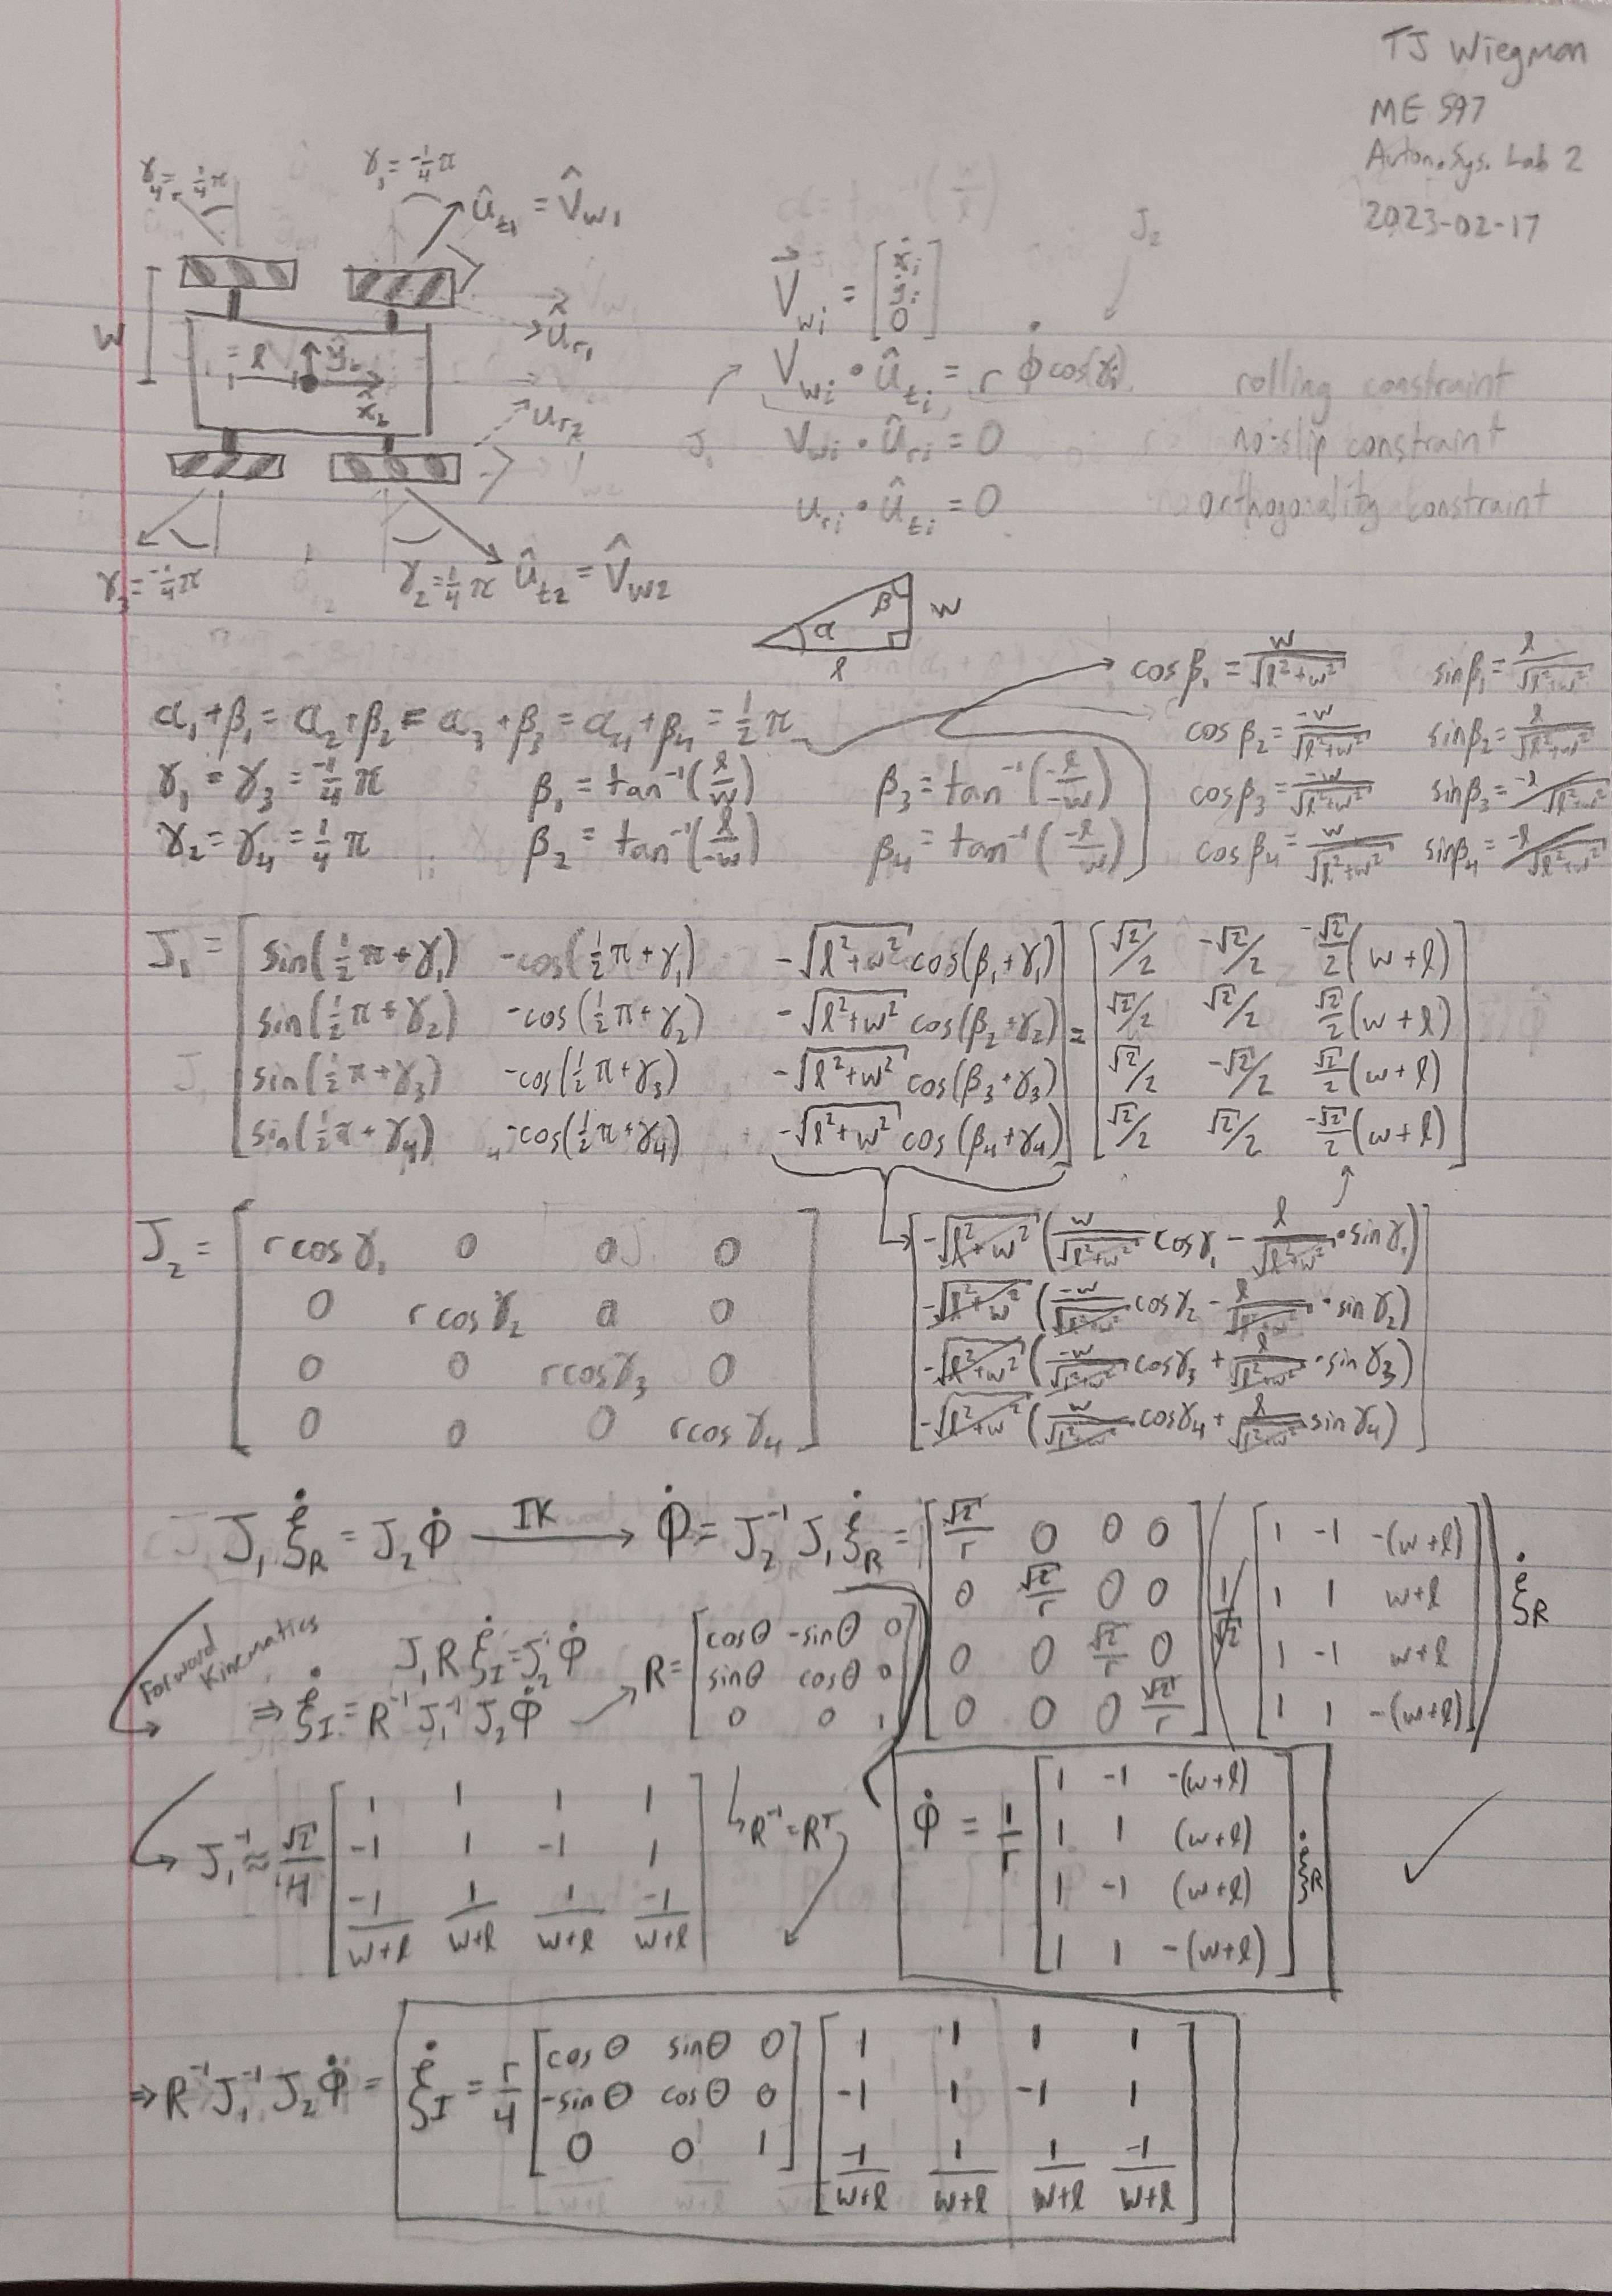 TJ Wiegman
ME 597
Auton. Sys. Lab 2
2023-02-17
γ₄ = ¼π
γ₁ = -¼π
û_t₁ = V̂_w₁
w
û_r₁
l
ŷ₂
x̂₂
u_r₂
γ₃ = -¼π
γ₂ = ¼π
û_t₂ = V̂_w₂
J₂
V⃗_wi = [ẋᵢ ẏᵢ 0]
V_wi · û_ti = r φ̇ cos(γᵢ) rolling constraint
J₁ V_wi · û_ri = 0 no-slip constraint
u_ri · û_ti = 0 orthogonality constraint
α β w l
α₁+β₁ = α₂+β₂ = α₃+β₃ = α₄+β₄ = ½π
γ₁ = γ₃ = -¼π β₁ = tan⁻¹(l/w) β₃ = tan⁻¹(-l/-w)
γ₂ = γ₄ = ¼π β₂ = tan⁻¹(l/-w) β₄ = tan⁻¹(-l/w)
cos β₁ = w/√(l²+w²) sin β₁ = l/√(l²+w²)
cos β₂ = -w/√(l²+w²) sin β₂ = l/√(l²+w²)
cos β₃ = -w/√(l²+w²) sin β₃ = -l/√(l²+w²)
cos β₄ = w/√(l²+w²) sin β₄ = -l/√(l²+w²)
J₁ = [sin(½π+γ₁) -cos(½π+γ₁) -√(l²+w²) cos(β₁+γ₁)] [√2/2 -√2/2 -√2/2(w+l)]
[sin(½π+γ₂) -cos(½π+γ₂) -√(l²+w²) cos(β₂+γ₂)] = [√2/2 √2/2 √2/2(w+l)]
[sin(½π+γ₃) -cos(½π+γ₃) -√(l²+w²) cos(β₃+γ₃)] [√2/2 -√2/2 √2/2(w+l)]
[sin(½π+γ₄) -cos(½π+γ₄) -√(l²+w²) cos(β₄+γ₄)] [√2/2 √2/2 -√2/2(w+l)]
J₂ = [r cos γ₁ 0 0 0]
[0 r cos γ₂ 0 0]
[0 0 r cos γ₃ 0]
[0 0 0 r cos γ₄]
-√(l²+w²) (w/√(l²+w²) cos γ₁ - l/√(l²+w²) · sin γ₁)
-√(l²+w²) (-w/√(l²+w²) cos γ₂ - l/√(l²+w²) · sin γ₂)
-√(l²+w²) (-w/√(l²+w²) cos γ₃ + l/√(l²+w²) · sin γ₃)
-√(l²+w²) (w/√(l²+w²) cos γ₄ + l/√(l²+w²) sin γ₄)
J₁ ξ̇_R = J₂ φ̇ IK→ φ̇ = J₂⁻¹ J₁ ξ̇_R = [√2/r 0 0 0] [1 -1 -(w+l)]
[0 √2/r 0 0] 1/√2 [1 1 w+l] ξ̇_R
[0 0 √2/r 0] [1 -1 w+l]
[0 0 0 √2/r] [1 1 -(w+l)]
Forward Kinematics
J₁ R ξ̇_I = J₂ φ̇
⇒ ξ̇_I = R⁻¹ J₁⁻¹ J₂ φ̇
R = [cosθ -sinθ 0]
[sinθ cosθ 0]
[0 0 1]
J₁⁻¹ ≈ √2/4 [1 1 1 1]
[-1 1 -1 1]
[-1/(w+l) 1/(w+l) 1/(w+l) -1/(w+l)]
R⁻¹ = Rᵀ
φ̇ = 1/r [1 -1 -(w+l)]
[1 1 (w+l)]
[1 -1 (w+l)]
[1 1 -(w+l)] ξ̇_R
⇒ R⁻¹ J₁⁻¹ J₂ φ̇ = ξ̇_I = r/4 [cosθ sinθ 0] [1 1 1 1]
[-sinθ cosθ 0] [-1 1 -1 1]
[0 0 1] [-1/(w+l) 1/(w+l) 1/(w+l) -1/(w+l)]